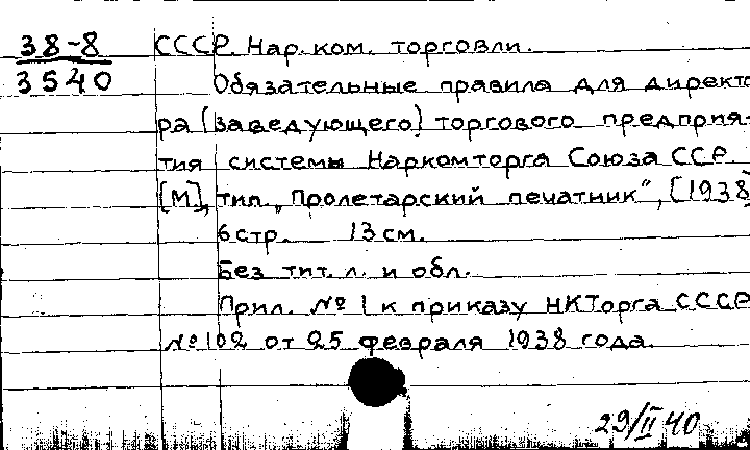 38-8 СССР. Нар. ком. торговли.
3540 Обязательные правила для директо
ра (заведующего) торгового предприя-
тия системы Наркомторга Союза ССР.
[М], тип. „Пролетарский печатник", [1938]
6 стр. 13 см.
Без тит. л. и обл.
Прил. № 1 к приказу НКТорга СССР
№ 102 от 25 февраля 1938 года.
29/II 40